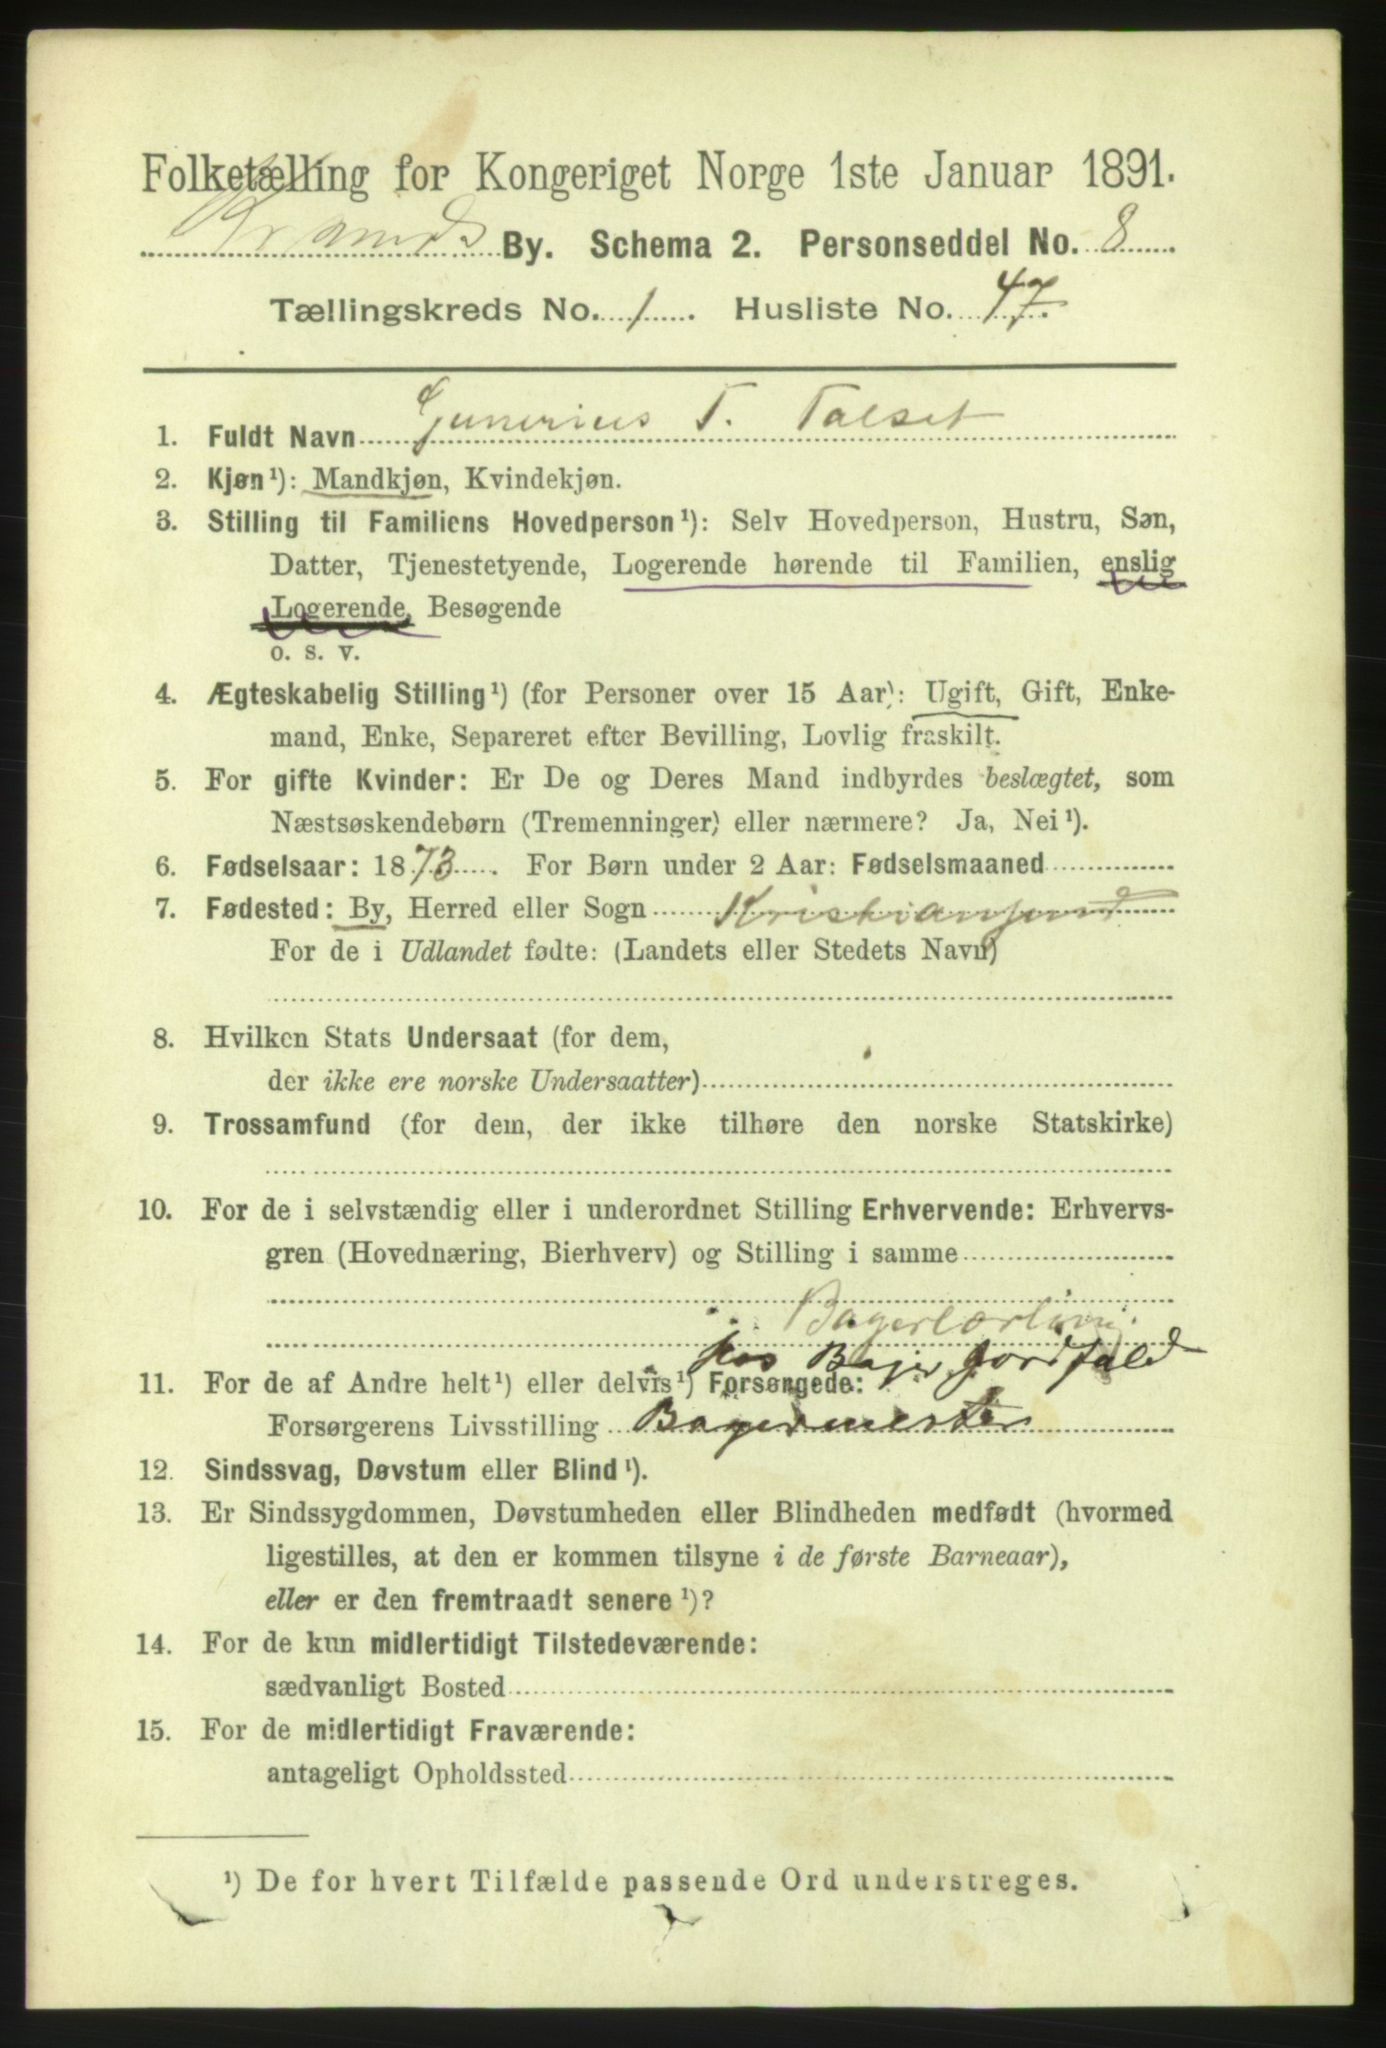 Folketælling for Kongeriget Norge 1ste Januar 1891.
By. Schema 2. Personseddel No. 8
Tællingskreds No. 1. Husliste No. 47.
1. Fuldt Navn Gunerius T. Talset
2. Kjøn¹): Mandkjøn, Kvindekjøn.
3. Stilling til Familiens Hovedperson¹): Selv Hovedperson, Hustru, Søn,
Datter, Tjenestetyende, Logerende hørende til Familien, enslig
Logerende, Besøgende
o. s. v.
4. Ægteskabelig Stilling¹) (for Personer over 15 Aar): Ugift, Gift, Enke-
mand, Enke, Separeret efter Bevilling, Lovlig fraskilt.
5. For gifte Kvinder: Er De og Deres Mand indbyrdes beslægtet, som
Næstsøskendebørn (Tremenninger) eller nærmere? Ja, Nei¹).
6. Fødselsaar: 1873. For Børn under 2 Aar: Fødselsmaaned
7. Fødested: By, Herred eller Sogn Kristiansund
For de i Udlandet fødte: (Landets eller Stedets Navn)
8. Hvilken Stats Undersaat (for dem,
der ikke ere norske Undersaatter)
9. Trossamfund (for dem, der ikke tilhøre den norske Statskirke)
10. For de i selvstændig eller i underordnet Stilling Erhvervende: Erhvervs-
gren (Hovednæring, Bierhverv) og Stilling i samme
Bagerlærling
hos Bager Jordfald
11. For de af Andre helt¹) eller delvis¹) Forsørgede:
Forsørgerens Livsstilling Bagermester
12. Sindssvag, Døvstum eller Blind¹).
13. Er Sindssygdommen, Døvstumheden eller Blindheden medfødt (hvormed
ligestilles, at den er kommen tilsyne i de første Barneaar),
eller er den fremtraadt senere¹)?
14. For de kun midlertidigt Tilstedeværende:
sædvanligt Bosted
15. For de midlertidigt Fraværende:
antageligt Opholdssted
¹) De for hvert Tilfælde passende Ord understreges.